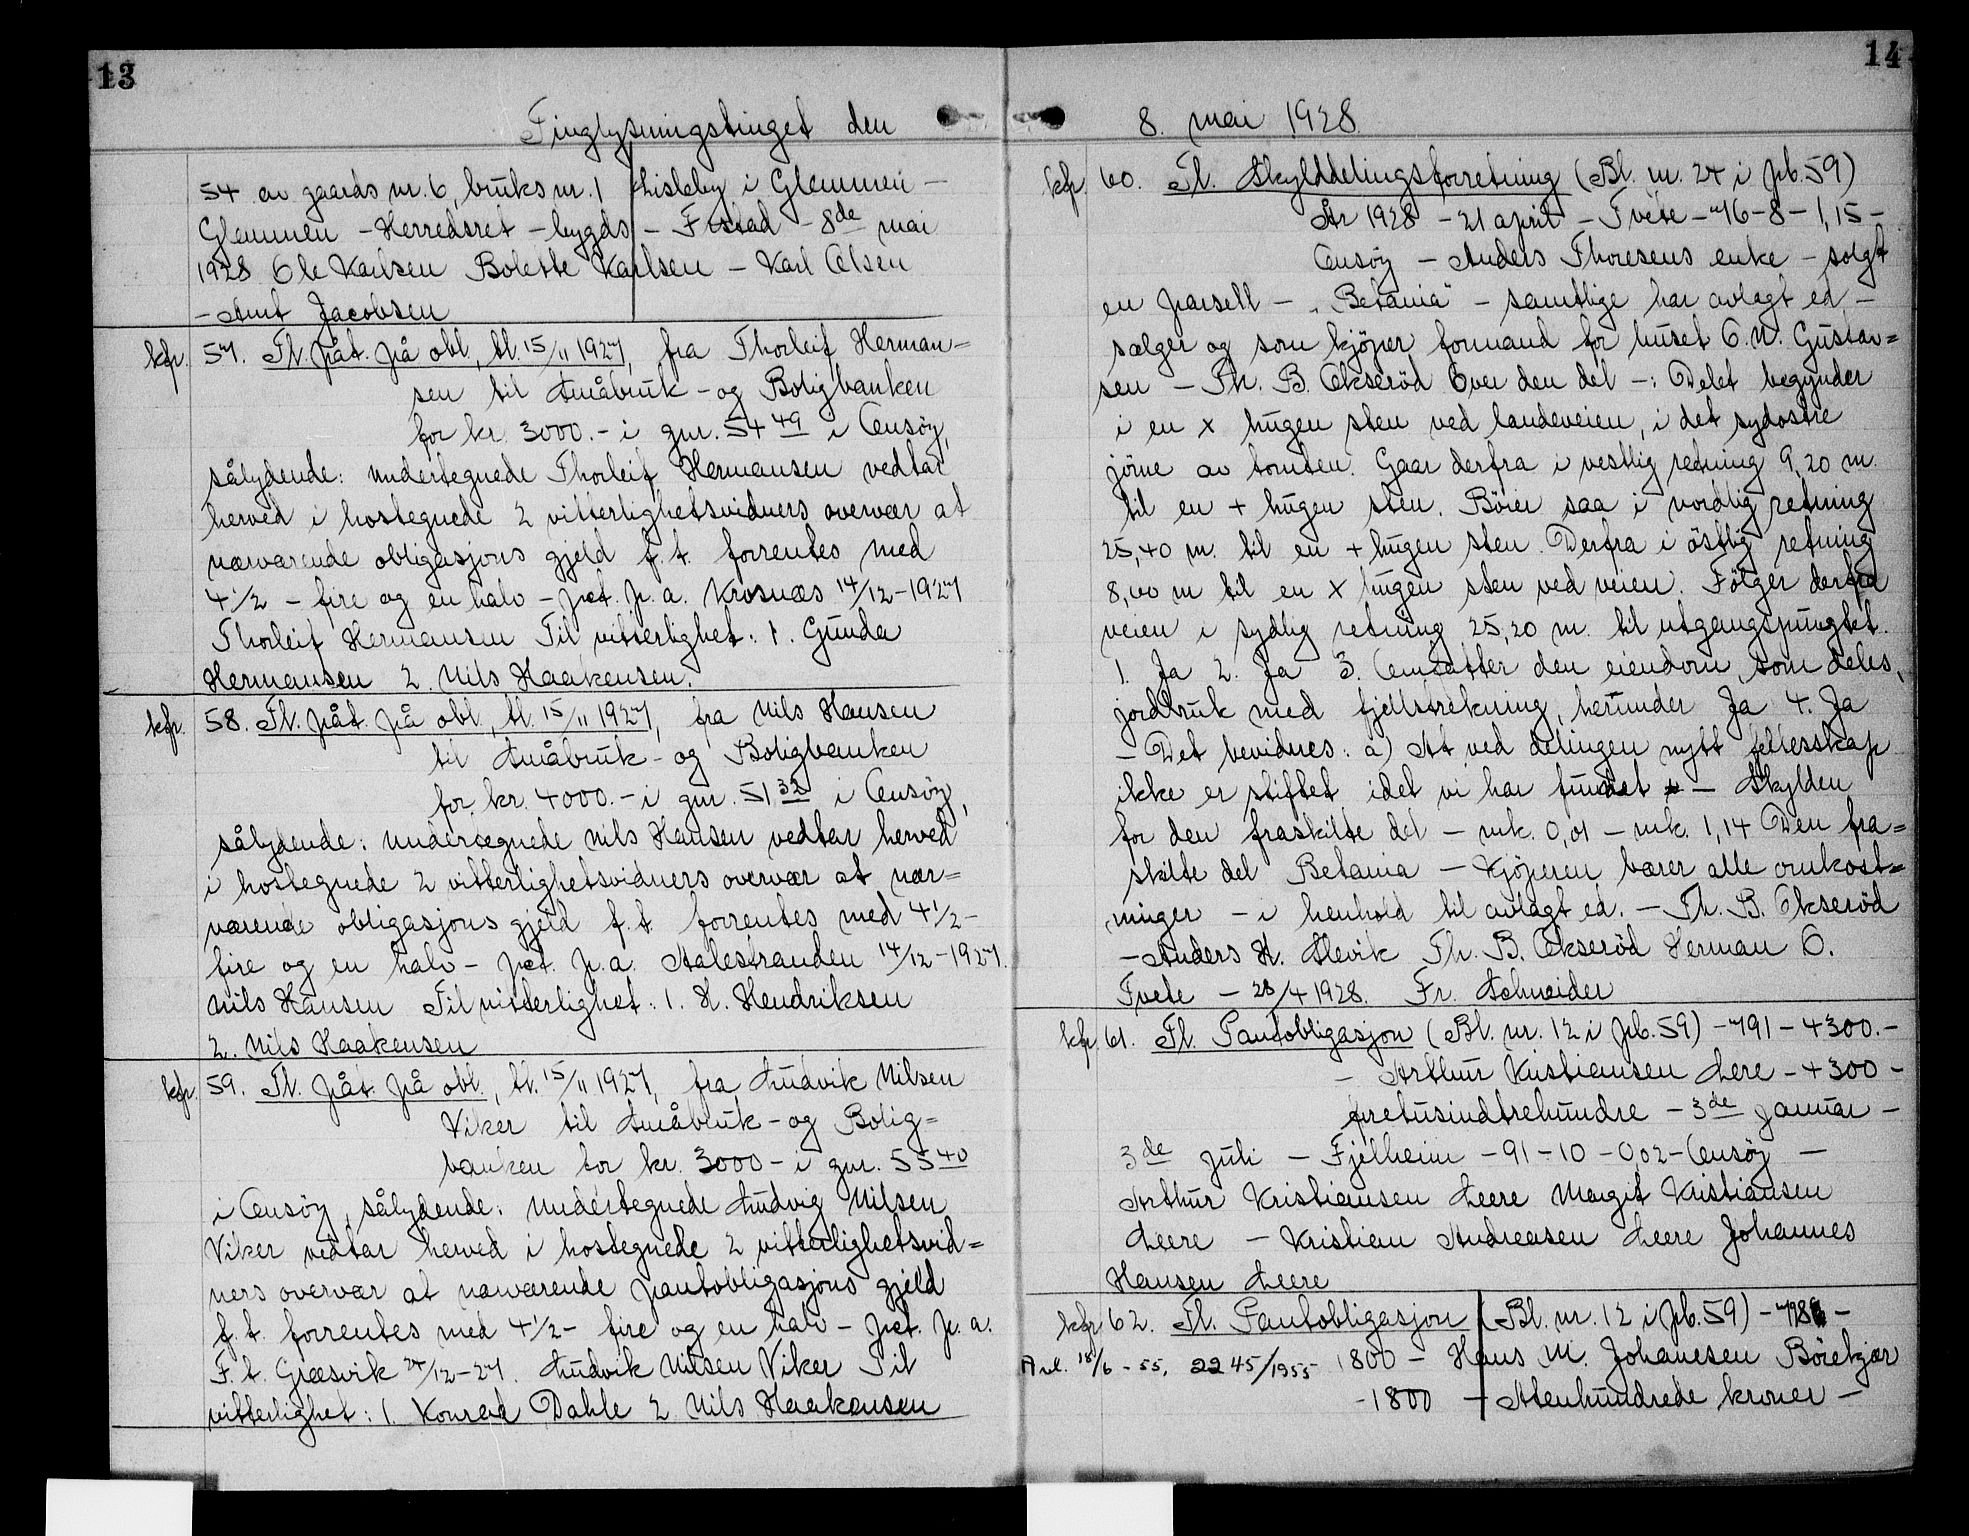 13
Tinglysningstinget den
54 av gaards nr. 6, bruks nr. 1 Lisleby i Glemmen –
Glemmen – Herredsret – bygds – F.stad – 8de mai
1928 Ole Karlsen Bolette Karlsen – Karl Olsen
– Arnt Jacobsen
kfr. 57. Tl. påt. på obl., tl. 15/11 1927, fra Thorleif Herman=
sen til Småbruk- og Boligbanken
for kr. 3000.- i gnr. 54 49 i Onsøy,
sålydende: Undertegnede Thorleif Hermansen vedtar
herved i hostegnede 2 vitterlighetsvidners overvær at
nærværende obligasjons gjeld f.t. forrentes med
4 1/2 – fire og en halv – pct. p.a. Krosnæs 14/12-1927
Thorleif Hermansen Til vitterlighet: 1. Gunda
Hermansen 2. Nils Haakensen.
kfr. 58. Tl. påt. på obl., tl. 15/11 1927, fra Nils Hansen
til Småbruk- og Boligbanken
for kr. 4000.- i gnr. 51 32 i Onsøy,
sålydende: Undertegnede Nils Hansen vedtar herved
i hostegnede 2 vitterlighetsvidners overvær at nær=
værende obligasjons gjeld f.t. forrentes med 4 1/2 –
fire og en halv – pct. p.a. Aalestranden 14/12-1927.
Nils Hansen Til vitterlighet: 1. H. Hendriksen
2. Nils Haakensen
kfr. 59. Tl. påt. på obl., tl. 15/11 1927, fra Ludvik Nilsen
Viker til Småbruk- og Bolig=
banken for kr. 3000- i gnr. 55 40
i Onsøy, sålydende: Undertegnede Ludvig Nilsen
Viker vedtar herved i hostegnede 2 vitterlighetsvid=
ners overvær at nærværende pantobligasjons gjeld
f.t. forrentes med 4 1/2 – fire og en halv – pct. p.a.
F.t. Græsvik 24/12-27. Ludvik Nilsen Viker Til
vitterlighet: 1. Konrad Dahle 2. Nils Haakensen
14
8. mai 1928
kfr. 60. Tl. Skylddelingsforretning (Bl. nr. 24 i pb. 59)
År 1928 – 21 april – Tvete – 76 – 8 – 1,15 –
Onsøy – Anders Thoresens enke – solgt
en parsell – "Betania" – samtlige har avlagt ed –
sælger og som kjöper formand for huset O. N. Gustav=
sen – Th. B. Okseröd Over den del –: Delet begynder
i en x hugen sten ved landeveien, i det sydöstre
jörne av tomten. Gaar derfra i vestlig retning 9,20 m.
til en + hugen sten. Böier saa i nordlig retning
25,40 m. til en + hugen sten. Derfra i östlig retning
8,00 m til en x hugen sten ved veien. Fölger derfra
veien i sydlig retning 25,20 m. til utgangspungtet.
1. Ja 2. Ja 3. Omfatter den eiendom, som deles,
jordbruk med fjellstrekning, herunder Ja 4. Ja
– Det bevidnes: a) At ved delingen nytt fellesskap
ikke er stiftet idet vi har fundet – Skylden
for den fraskilte del – mk. 0,01 – mk. 1,14 Den fra=
skilte del Betania – Kjöperen bærer alle omkost=
ninger – i henhold til avlagt ed. – Th. B. Okseröd
– Anders H. Slevik Th. B. Okseröd Herman O.
Tvete – 28/4 1928. Fr. Schneider
kfr. 61. Tl. Pantobligasjon (Bl. nr. 12 i pb. 59) – 791 – 4300.-
– Arthur Kristiansen Leere – 4300 –
firetusindtrehundre – 3de januar –
3de juli – Fjelheim – 91 – 10 – 0,02 – Onsøy –
Arthur Kristiansen Leere Margit Kristiansen
Leere – Kristian Andreasen Leere Johannes
Hansen Leere
kfr. 62. Tl. Pantobligasjon (Bl. nr. 12 i pb. 59) –
Avl. 18/6 – 55, 2245/1955 1800 – Hans M. Johanesen
– 1800 – Attenhundrede kroner –